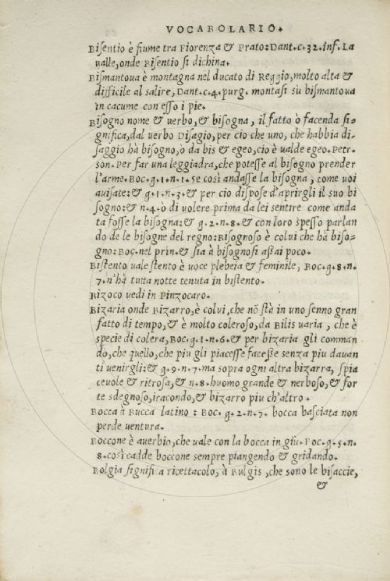 VOCABOLARIO.
Bisentio è fiume tra Fiorenza & Prato: Dant.c.32.inf. La
ualle, onde Bisentio si dichina.
Bismantoua è montagna nel ducato di Reggio, molto alta &
difficile al salire, Dant.c.4.purg. montasi su bismantoua
in cacume con esso i pie.
Bisogno nome & uerbo, & bisogna, il fatto ò facenda si=
gnifica, dal uerbo Disagio, per cio che uno, che habbia di=
saggio hà bisogno, ò da bis & egeo, cio è ualde egeo. Petr.
son. Per far una leggiadra, che potesse al bisogno prender
l'arme. Boc.g.1.n.1. se cosi andasse la bisogna, come uoi
auisate: & g.1.n.3. & per cio dispose d'aprirgli il suo bi
sogno: & n.4. ò di uolere prima da lei sentire come anda
ta fosse la bisogna: & g.2.n.8. & con loro spesso parlan
do de le bisogne del regno: Bisognoso è colui che hà biso=
gno: Boc. nel prin. & sia è bisognosi assai poco.
Bistento uale stento è uoce plebeia & feminile, Boc.g.8.n.
7. n'hà tutta notte tenuta in bistento.
Bizoco uedi in Pinzocaro.
Bizaria onde Bizarro, è colui, che nō stà in uno senno gran
fatto di tempo, & è molto coleroso, da Bilis uaria, che è
specie di colera, Boc.g.1.n.6. & per bizaria gli comman
do, che quello, che piu gli piacesse facesse senza piu dauan
ti uenirgli: & g.9.n.7. ma sopra ogni altra bizarra, spia
ceuole & ritrosa, & n.8. huomo grande & nerboso, & for
te sdegnoso, iracondo, & bizarro piu ch'altro.
Bocca à Bucca latino: Boc.g.2.n.7. bocca basciata non
perde uentura.
Boccone è auerbio, che uale con la bocca in giu. Boc.g.5.n.
8. cosi cadde boccone sempre piangendo & gridando.
Bolgia signifi a ricettacolo, à Bulgis, che sono le bisaccie,
&